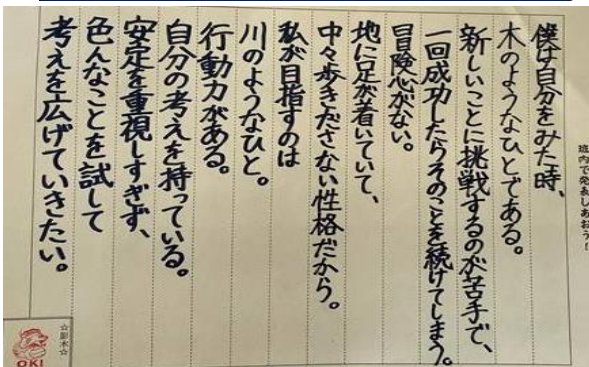 班内で発表しあおう！
僕は自分をみた時、
木のようなひとである。
新しいことに挑戦するのが苦手で、
一回成功したらそのことを続けてしまう。
冒険心がない。
地に足が着いていて、
中々歩きださない性格だから。
私が目指すのは
川のようなひと。
行動力がある。
自分の考えを持っている。
安定を重視しすぎず、
色んなことを試して
考えを広げていきたい。
OKI